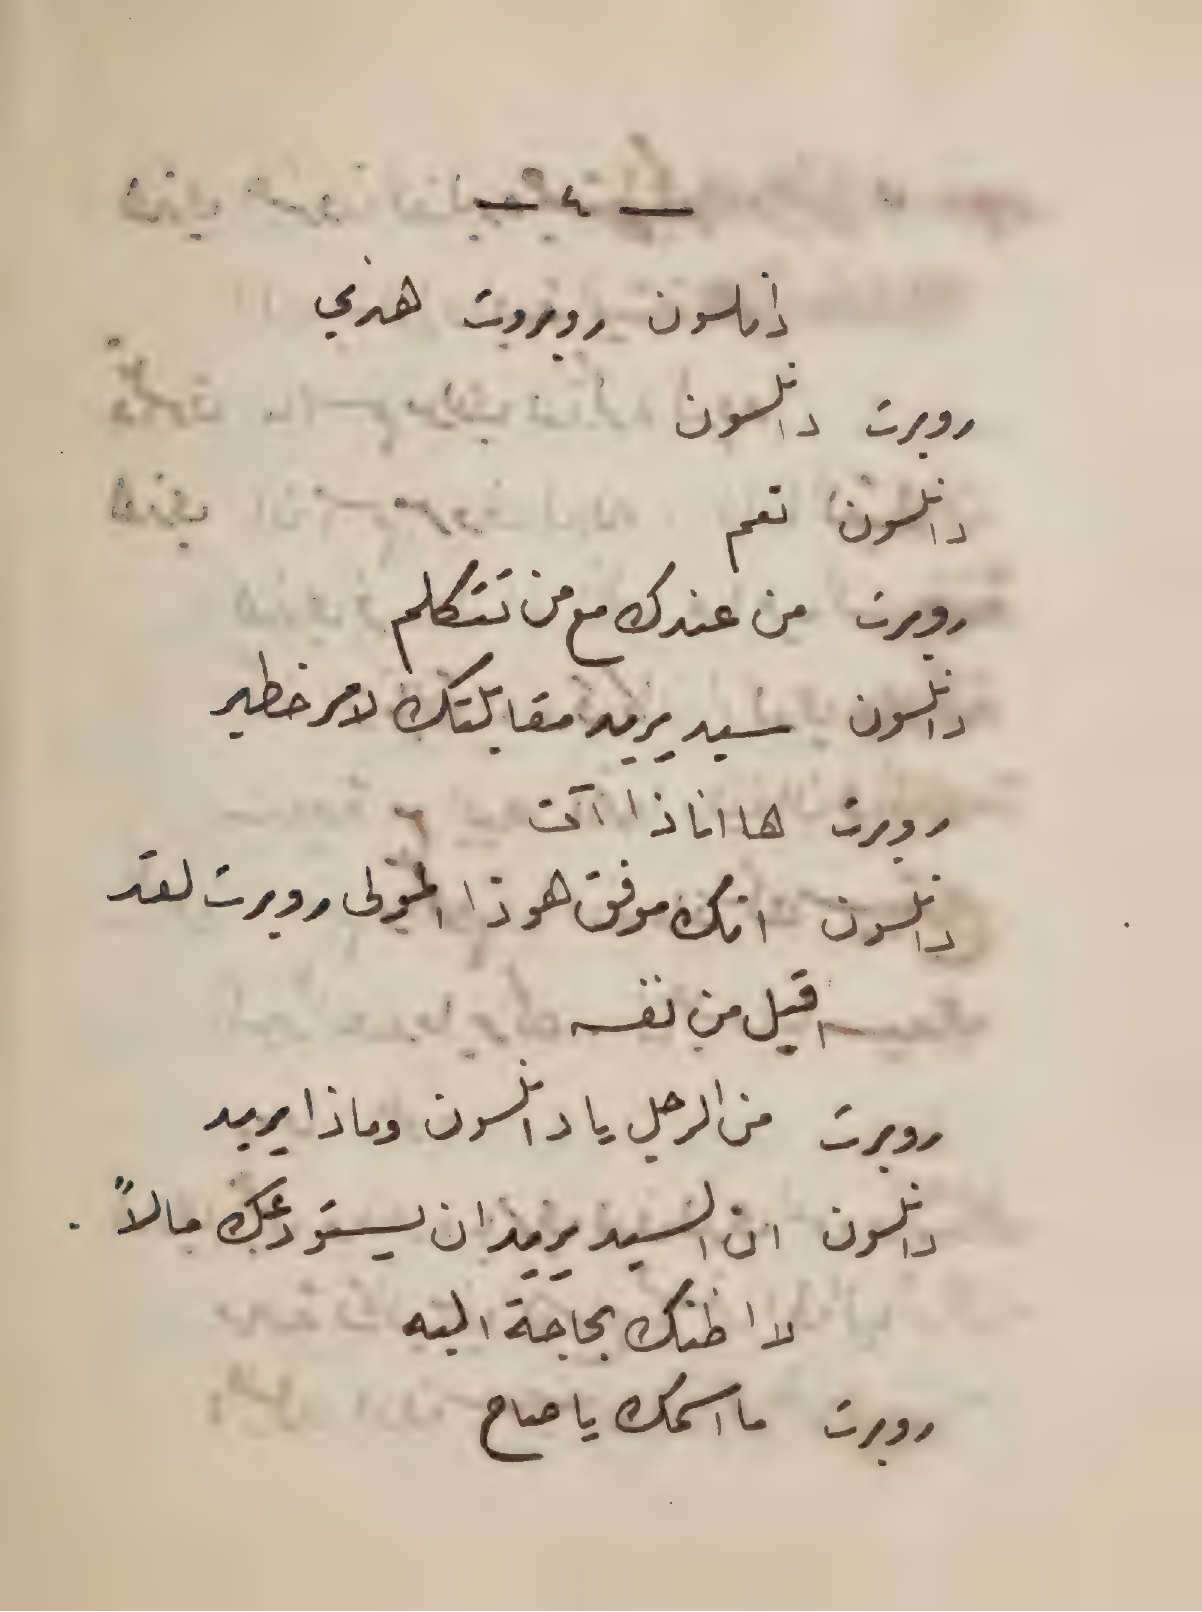 — ٤ —
دانلسون روبروت هنري
روبرت دانلسون
دانلسون نعم
روبرت من عندك مع من تتكلم
دانلسون سيد يريد مقابلتك لامر خطير
روبرت ها انا ذا آت
دانلسون انك موفق هو ذا المولى روبرت لقد
اقبل من نفسه
روبرت من الرجل يا دانلسون وماذا يريد
دانلسون ان السيد يريد ان يستودعك مالاً .
لا اظنك بحاجة اليه
روبرت ما اسمك يا صاح